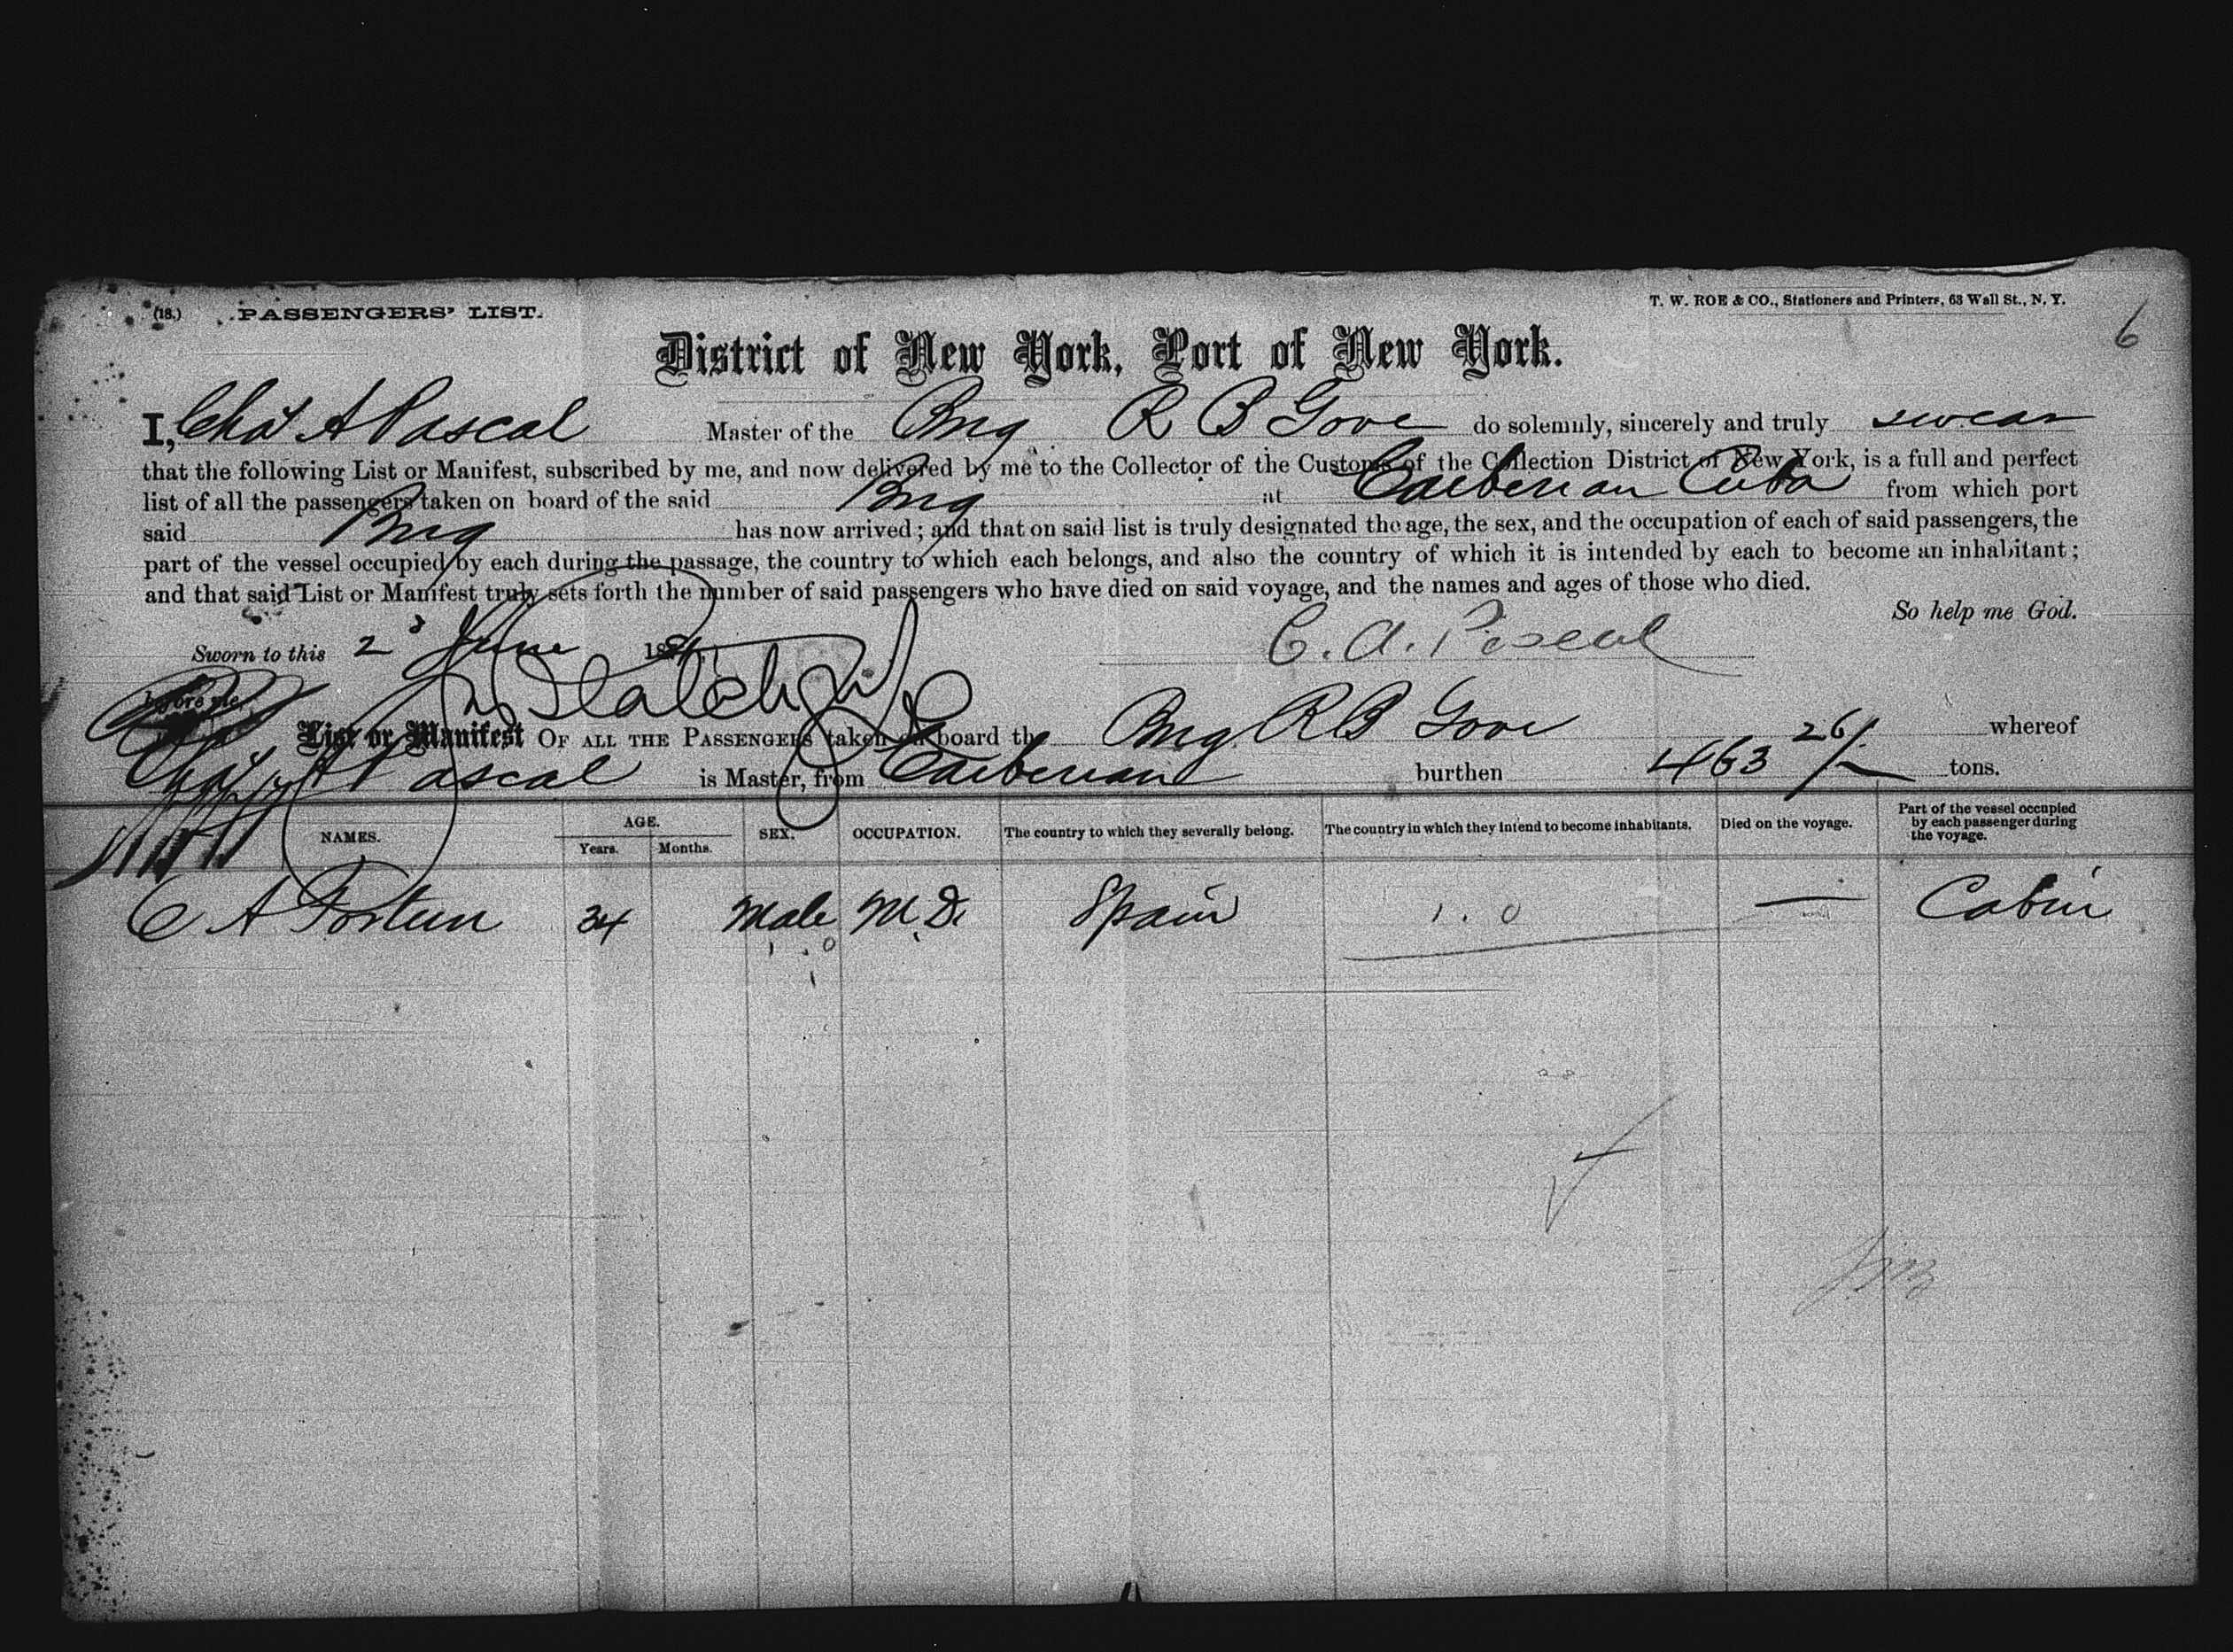 (18.) PASSENGERS' LIST.
T. W. ROE & CO., Stationers and Printers, 63 Wall St., N. Y.
6
District of New York, Port of New York.
I, Chas A Pascal Master of the Brig R B Gove do solemnly, sincerely and truly swear
that the following List or Manifest, subscribed by me, and now delivered by me to the Collector of the Customs of the Collection District of New York, is a full and perfect
list of all the passengers taken on board of the said Brig at Caiberian Cuba from which port
said Brig has now arrived; and that on said list is truly designated the age, the sex, and the occupation of each of said passengers, the
part of the vessel occupied by each during the passage, the country to which each belongs, and also the country of which it is intended by each to become an inhabitant;
and that said List or Manifest truly sets forth the number of said passengers who have died on said voyage, and the names and ages of those who died.
So help me God.
Sworn to this 2d June 18
C. A. Pascal
before me,
List or Manifest OF ALL THE PASSENGERS taken on board the Brig R B Gove whereof
Chas A Pascal is Master, from Caiberian burthen 463 26/ tons.
NAMES. AGE. Years. Months. SEX. OCCUPATION. The country to which they severally belong. The country in which they intend to become inhabitants. Died on the voyage. Part of the vessel occupied by each passenger during the voyage.
C A Fortun 34 Male M.D. Spain 1.0 — Cabin
1.0
1